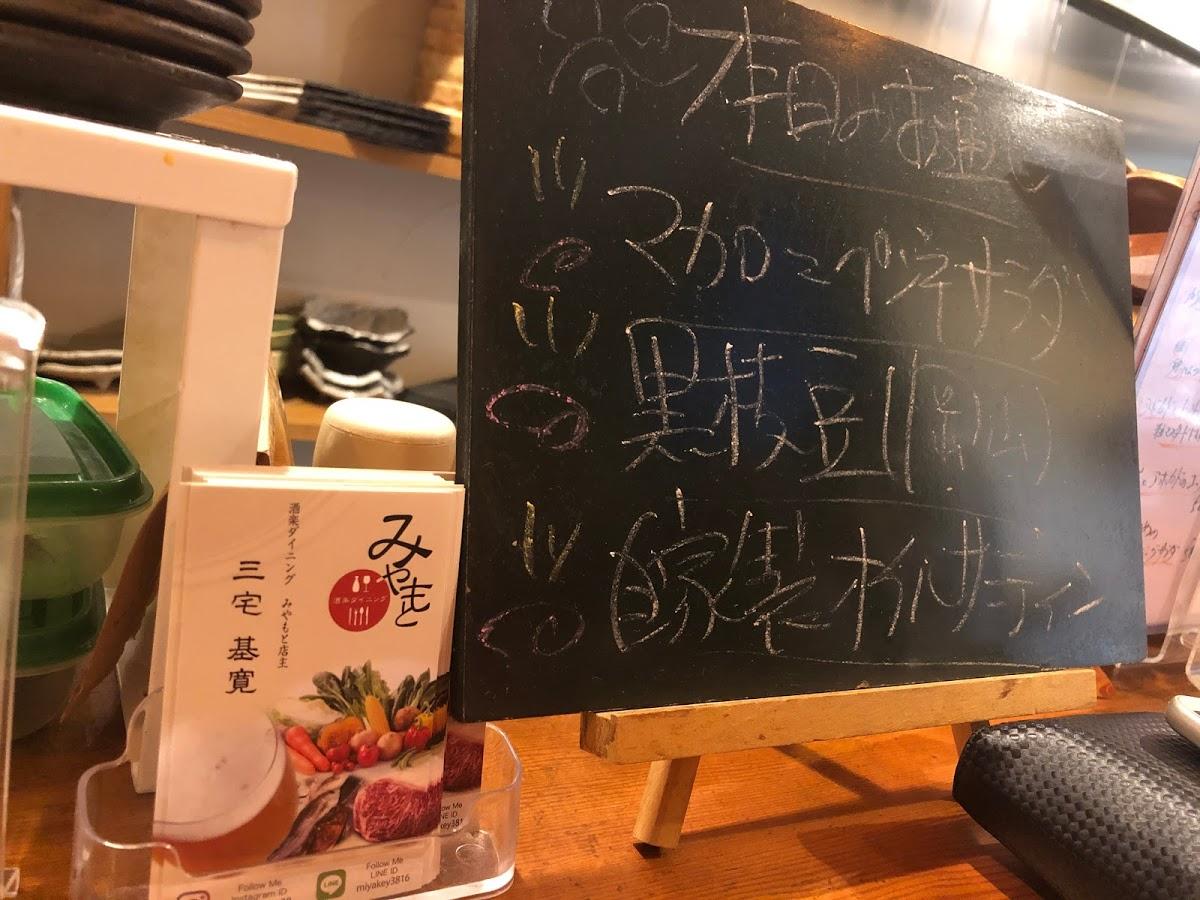 本日のお通し
マカロニペンネサラダ
黒枝豆(岡山)
自家製オイルサーディン
みやもと
酒楽ダイニング
酒楽ダイニング みやもと店主
三宅 基寛
Follow Me
LINE ID
miyakey3816
Follow Me
Instagram ID